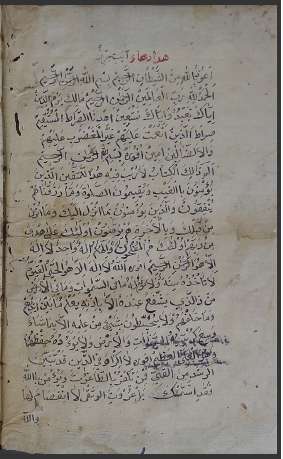 هذا دعاء
اعوذ بالله من الشيطان الرجيم بسم الله الرحمن الرحيم
الحمد لله رب العالمين الرحمن الرحيم مالك يوم الدين
اياك نعبد واياك نستعين اهدنا الصراط المستقيم
صراط الذين انعمت عليهم غير المغضوب عليهم
ولا الضالين امين بسم الله الرحمن الرحيم
الم ذلك الكتاب لا ريب فيه هدا للمتقين الذين
يؤمنون بالغيب ويقيمون الصلوة ومما رزقناهم
ينفقون والذين يؤمنون بما انزل اليك وما انزل
من قبلك وبالآخرة هم يوقنون اولئك على هدى
من ربهم واولئك هم المفلحون والهكم اله واحد لا اله
الا هو الرحمن الرحيم الله لا اله الا هو الحي القيوم
لا تاخذه سنة ولا نوم له ما في السموات وما في الارض
من ذا الذي يشفع عنده الا باذنه يعلم ما بين ايديهم
وما خلفهم ولا يحيطون بشئ من علمه الا بما شاء
وسع كرسيه السموات والارض ولا يؤده حفظهما
وهو العلي العظيم لا اكراه في الدين قد تبين
الرشد من الغي فمن يكفر بالطاغوت ويؤمن بالله
فقد استمسك بالعروة الوثقى لا انفصام لها
والله